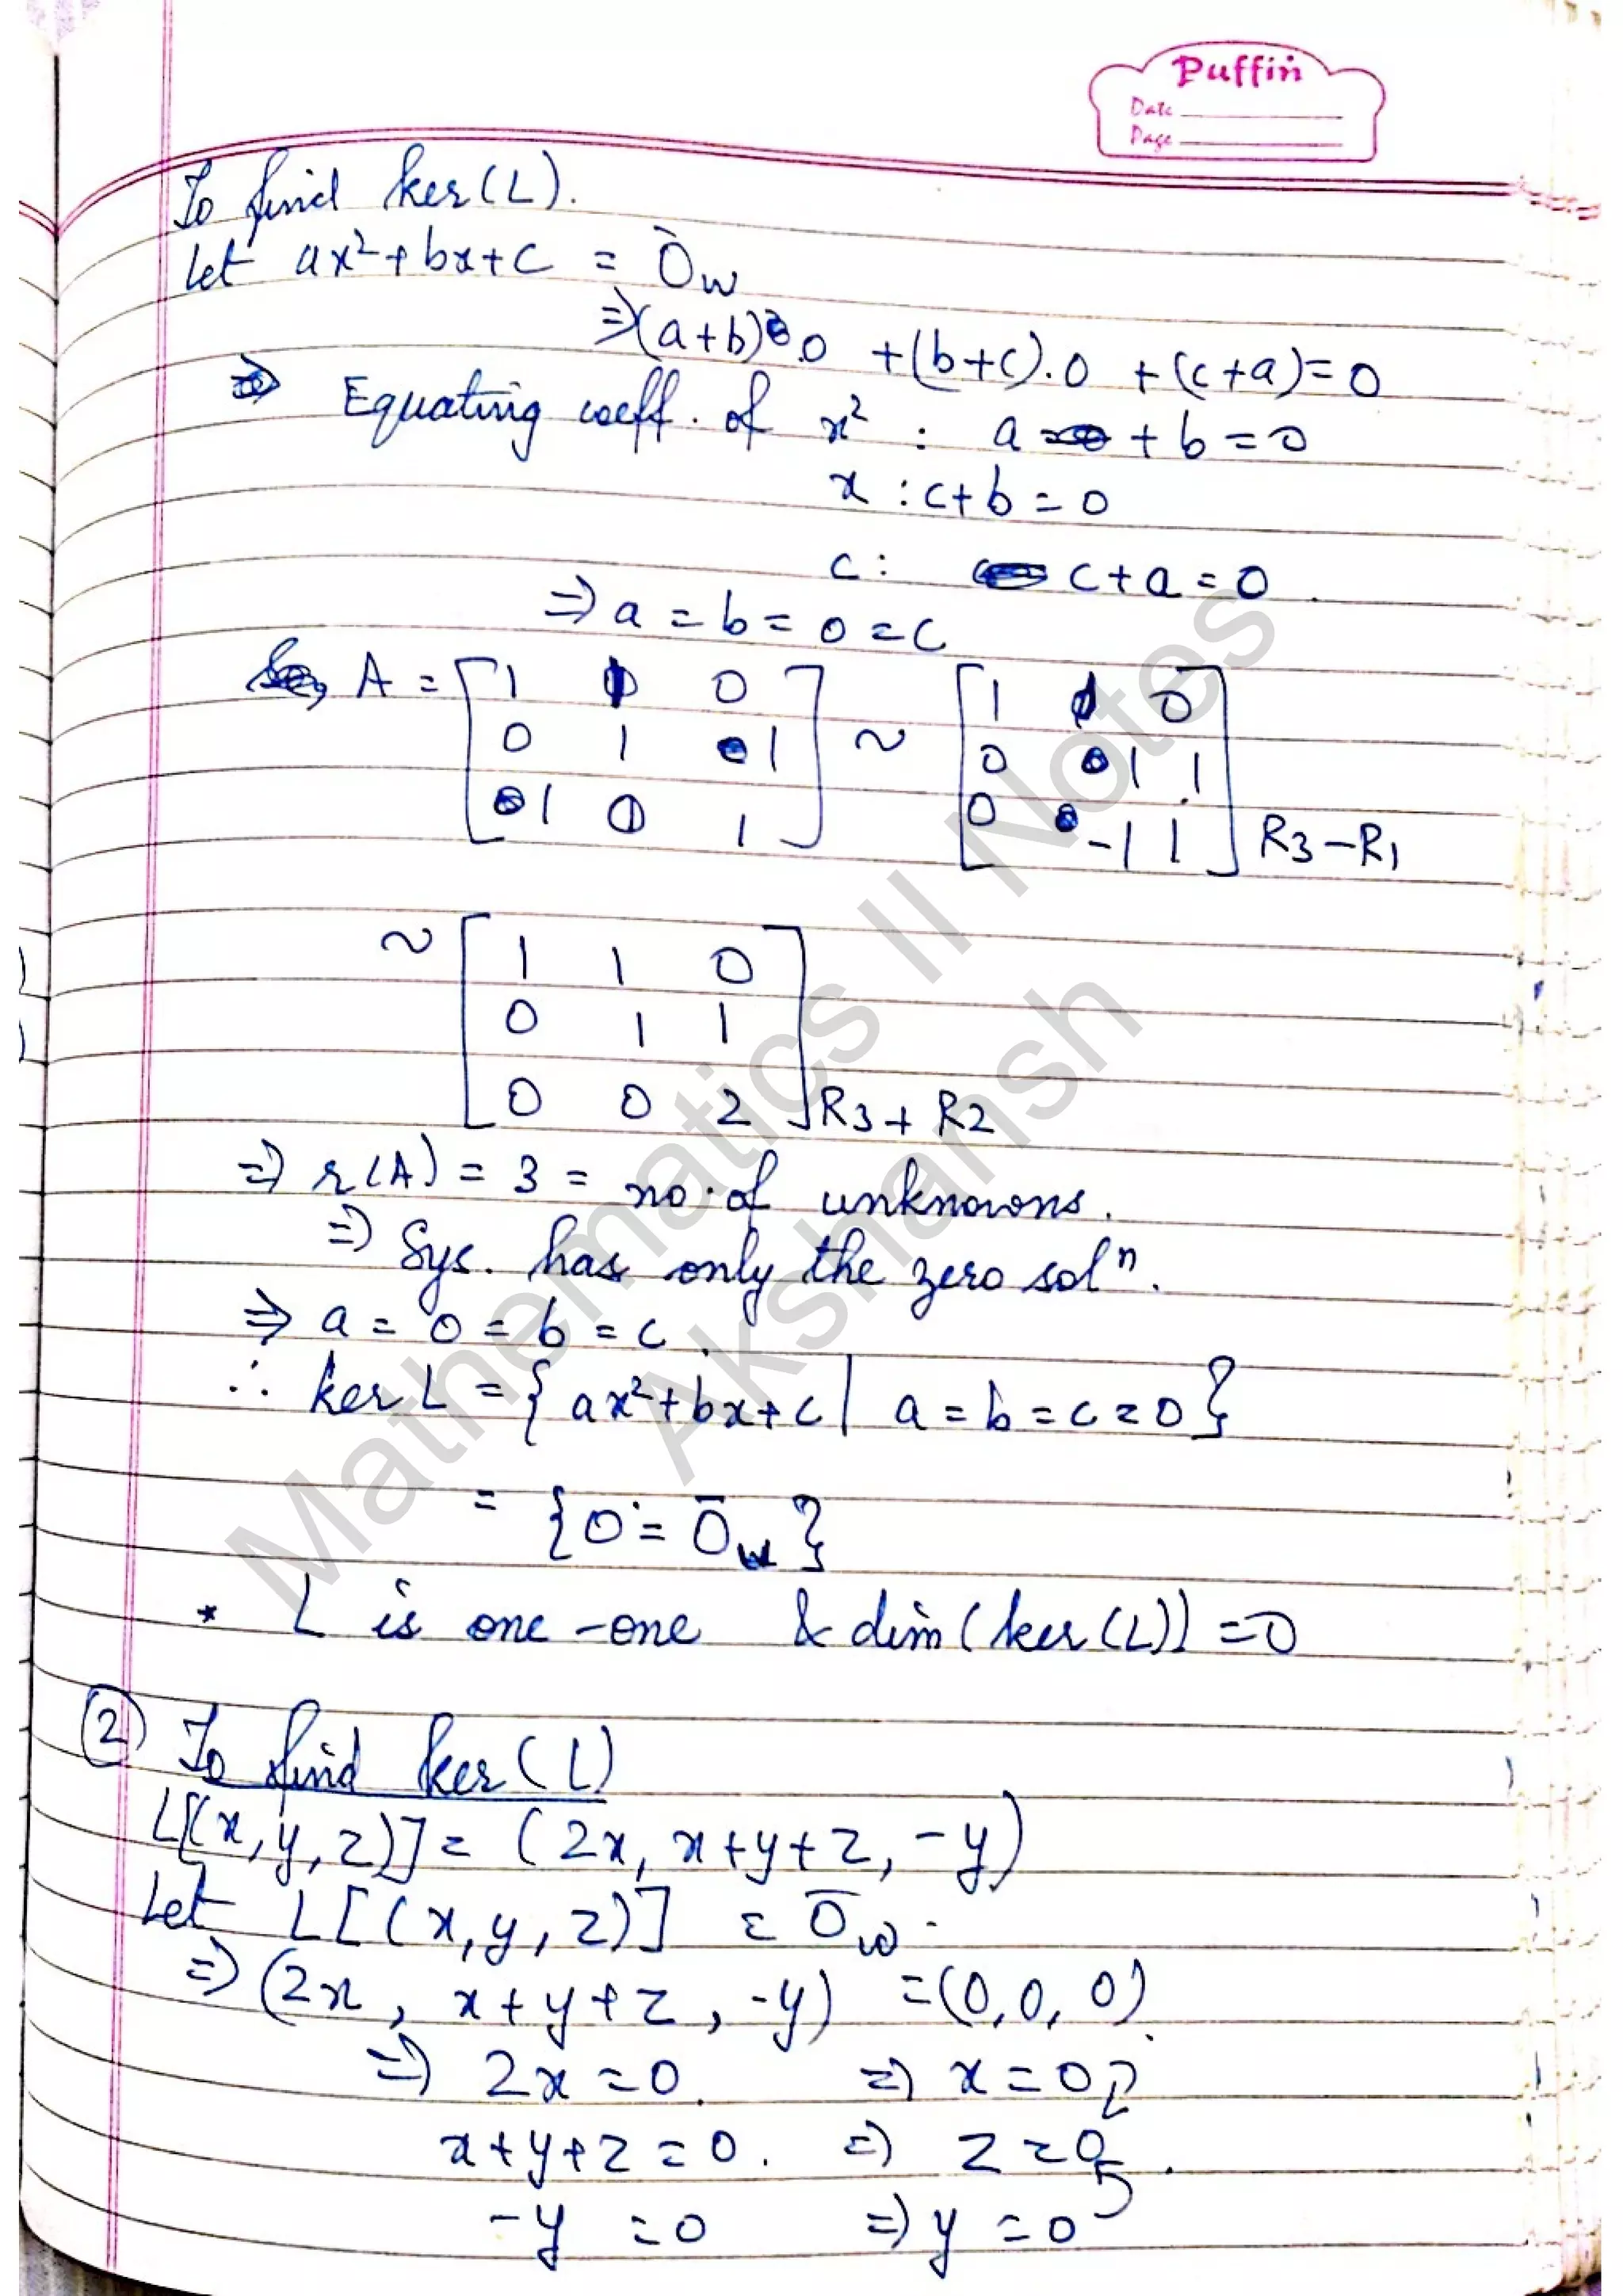 Puffin
Date
Page
To find ker(L).
Let ax²+bx+c = 0̄w
⇒(a+b)².0 +(b+c).0 +(c+a)=0
⇒ Equating coeff. of x² : a + b = 0
x : c+b = 0
c : c+a = 0.
⇒ a = b = 0 = c
A = [1 1 0
0 1 1
1 0 1] ~ [1 1 0
0 1 1
0 -1 1] R3-R1
~ [1 1 0
0 1 1
0 0 2] R3+R2
⇒ r(A) = 3 = no. of unknowns.
⇒ Sys. has only the zero solⁿ.
⇒ a = 0 = b = c.
∴ ker L = {ax²+bx+c | a = b = c = 0}
= {0 = 0̄w}
* L is one-one & dim(ker(L)) = 0
② To find ker(L)
L[(x,y,z)] = (2x, x+y+z, -y)
Let L[(x,y,z)] = 0̄w.
⇒ (2x, x+y+z, -y) = (0,0,0).
⇒ 2x = 0. ⇒ x = 0
x+y+z = 0. ⇒ z = 0.
-y = 0 ⇒ y = 0
Mathematics II Notes
Akshansh